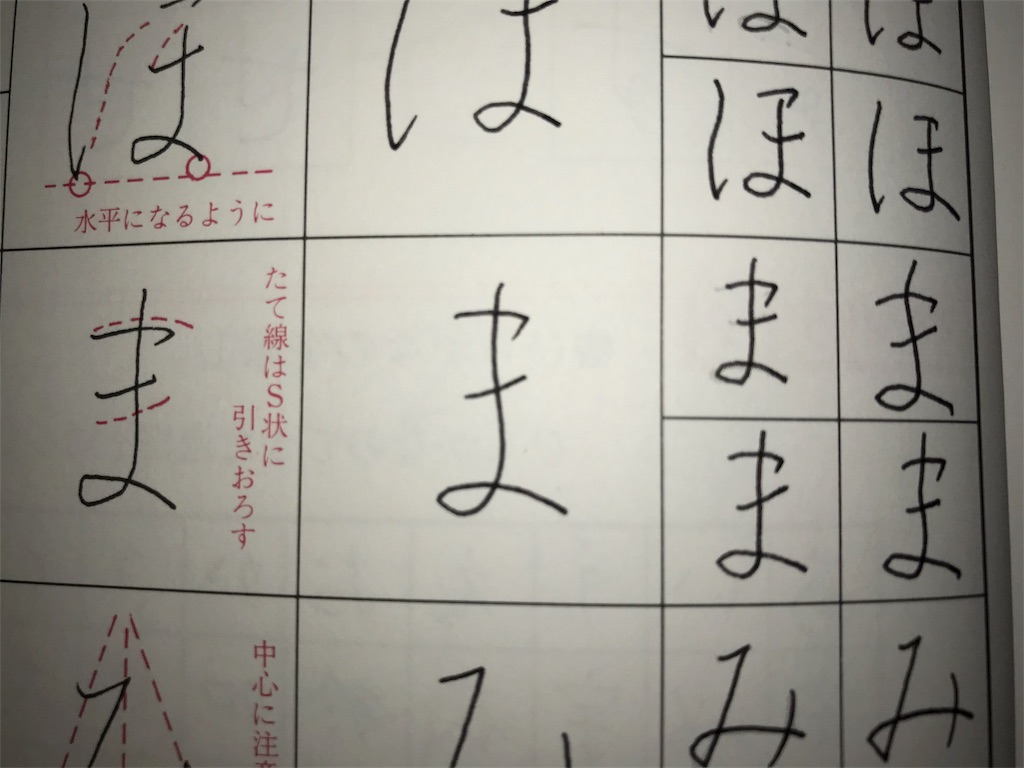 ほ ほ ほ ほ
ほ ほ
水平になるように
ま ま ま ま
ま ま
たて線はS状に
引きおろす
み み み み
中心に注意